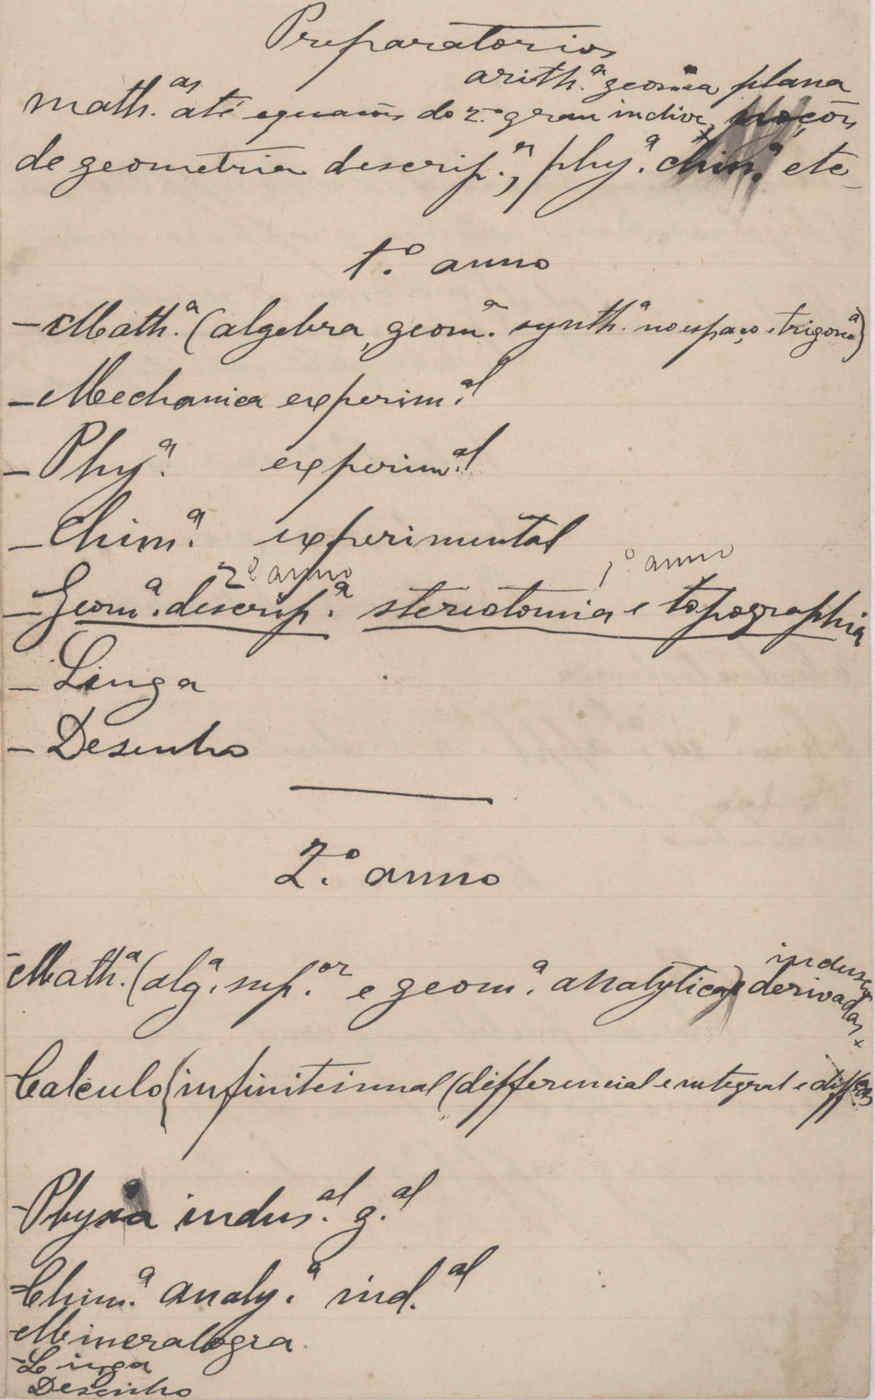 Preparatorios
arith.ª geomia plana
math.as até equacões do 2.º grau inclive, noções
de geometria descrip.ª, phy.ª chim.ª etc
1.º anno
- Math.ª (algebra, geom.ª synth.ª no espaço e trigonª)
- Mechanica experim.al
- Phy.ª experim.al
- Chim.ª experimental
2º anno 1.º anno
- Geom.ª descrip.ª stereotomia e topographia
- Linga
- Desenho
2.º anno
- Math.ª (alg.ª sup.or e geom.ª analytica) derivadas
- Calculo (infinitesimal (differencial e integral e
- Physia indus.al g.al
- Chim.ª analy.ª ind.al
- Mineralogra
- Linga
Desenho